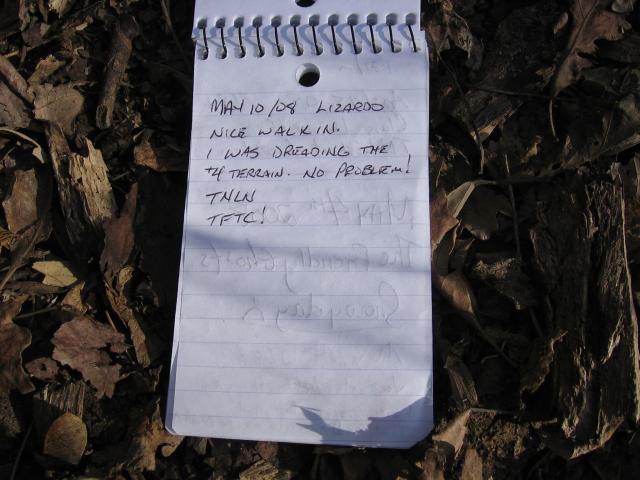 MAY 10/08 LIZARDO
NICE WALK IN.
I WAS DREADING THE
*4 TERRAIN. NO PROBLEM!
TNLN
TFTC!